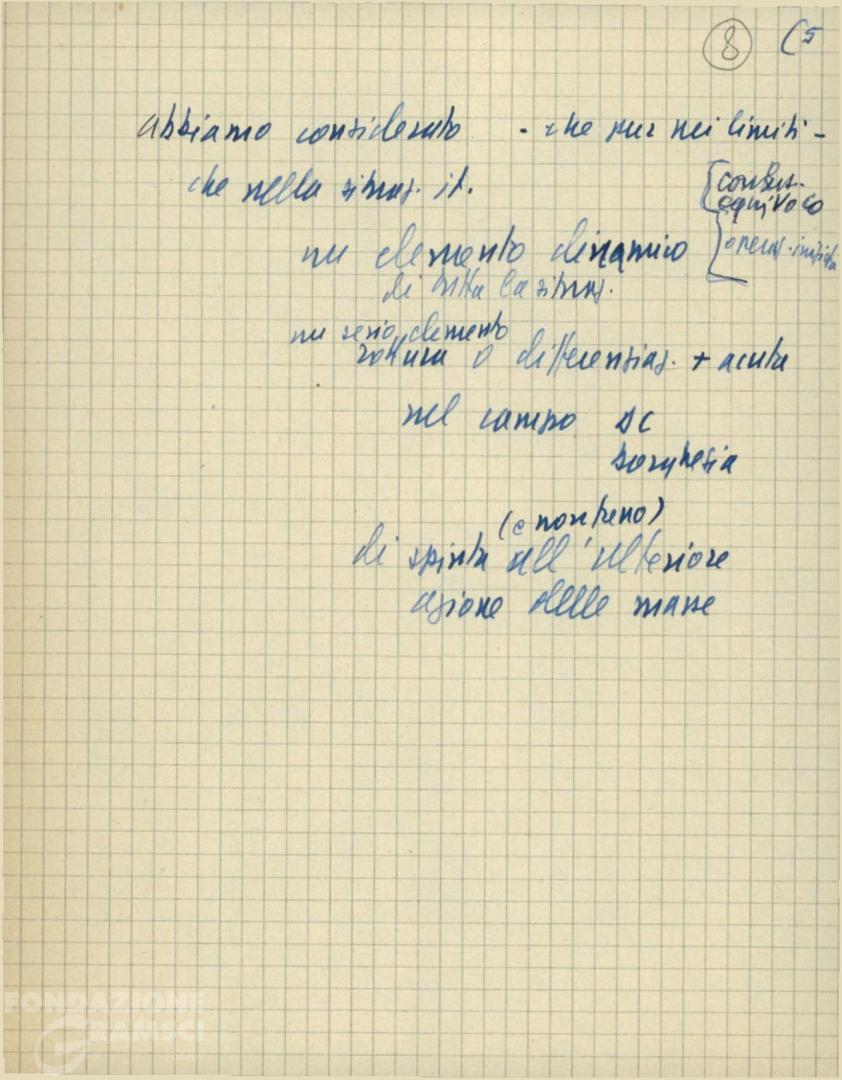 8 (5
abbiamo considerato - che pur nei limiti -
che nella situaz. it.
confus.
equivoco
operaz. iniziata
un elemento dinamico
di tutta la situaz.
un serio elemento
rottura o differenziaz. + acuta
nel campo DC
borghesia
(e nostreno)
di spinta all'ulteriore
azione delle masse
FONDAZIONE
GRAMSCI